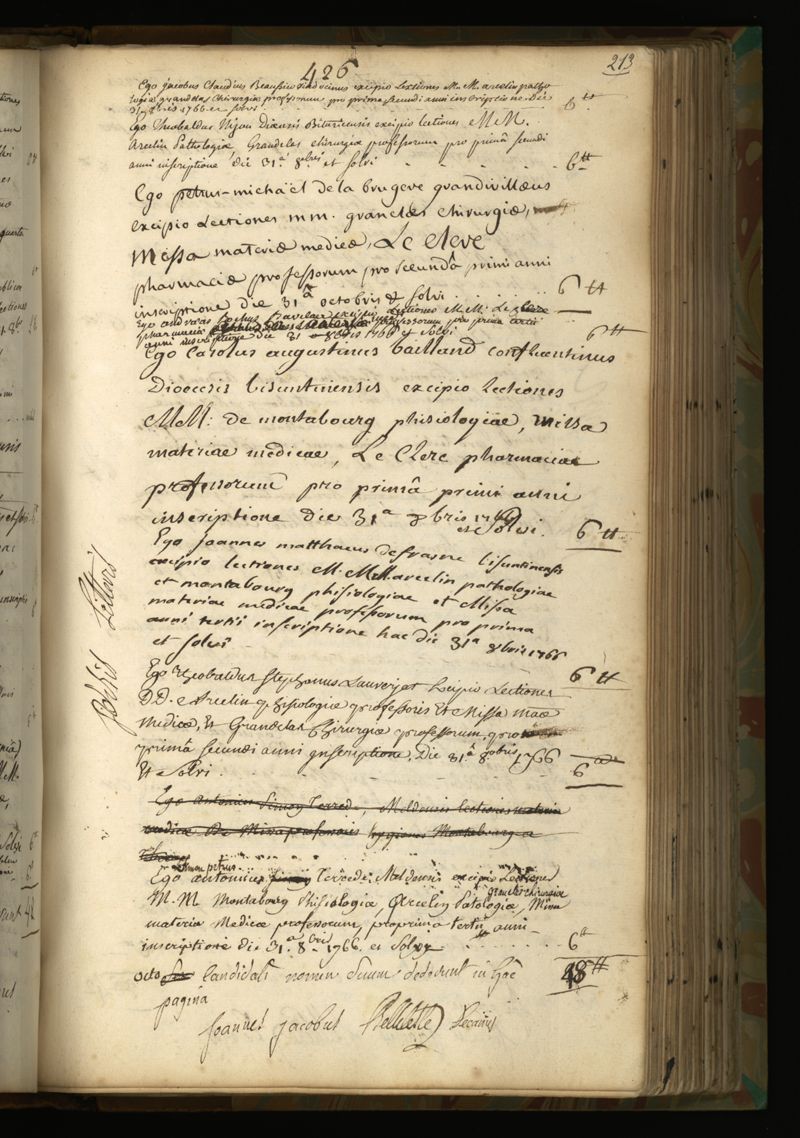 426
213
Ego jacobus Claudius excipio Lectiones M. M. arcelin patho
logiæ grandclas Chirurgiæ professorum pro prima secundi anni inscriptione. Die
31 8bris 1766 et solvi 6 ₶
Ego Theobaldus excipio lectiones M.M.
Arcelin Pathologiæ Grandclas chirurgiæ professorum pro primâ secundi
anni inscriptione die 31.a 8bris et solvi 6 ₶
Ego petrus-michaël de la brugere grandivillæus
excipio Lectiones mm. granclas chirurgiæ,
Missa materiæ medicæ, Le clerc
pharmaciæ professorum pro secundâ primi anni
inscriptione die 31a octobris & solvi 6 ₶
Ego andræas excipio lectiones M.M. Le clerc
pharmaciæ professorum pro prima
anni inscriptione die 31 8bris 1766 et solvi 6 ₶
Ego Carolus augustinus bailland confluentinus
Dioecesis bisuntinensis excipio lectiones
M.M. de montabourg phisiologiae, missa
materiae medicae, Le Clerc pharmaciae
professorum pro primâ primi anni
inscriptione die 31a 8bris 1766
et solvi. 6 ₶
Ego joannes matthaeus defrasne bisuntinensis
excipio lectiones M. M. arcelin pathologiae
et montabourg phisiologiae et Missa
materiae medicae professorum pro prima
anni tertii inscriptione hac die 31a 8bris 1766
et solvi 6 ₶
Ego Theobaldus stephanus Lauverjat Excipio Lectiones
DD. Arcelin phisiologiæ professoris Et Missa mae
Medicæ, Et Grandclas Chirurgiæ professorum, pro
primâ secundi anni inscriptione, Die 31a 8obris 1766
Et solvi. 6
Ego Antonius Simon Terrede, Meldensis lectiones materiæ
medicæ De Missa professoris hygienes Montabourg
simon petrus
Ego antonius Terrede Meldensis excipio Lectiones
grandclas chirurgiæ
M. M Montabourg Phisiologiæ, Arcelin Patologiæ, Missa
materiæ Medicæ professorum, pro prima tertii anni
inscriptione die 31.a 8bris 1766. et Solvi 6 ₶
octo Candidati nomen suum dederunt in hac 48 ₶
pagina
Joannes jacobus Belletete Decanus